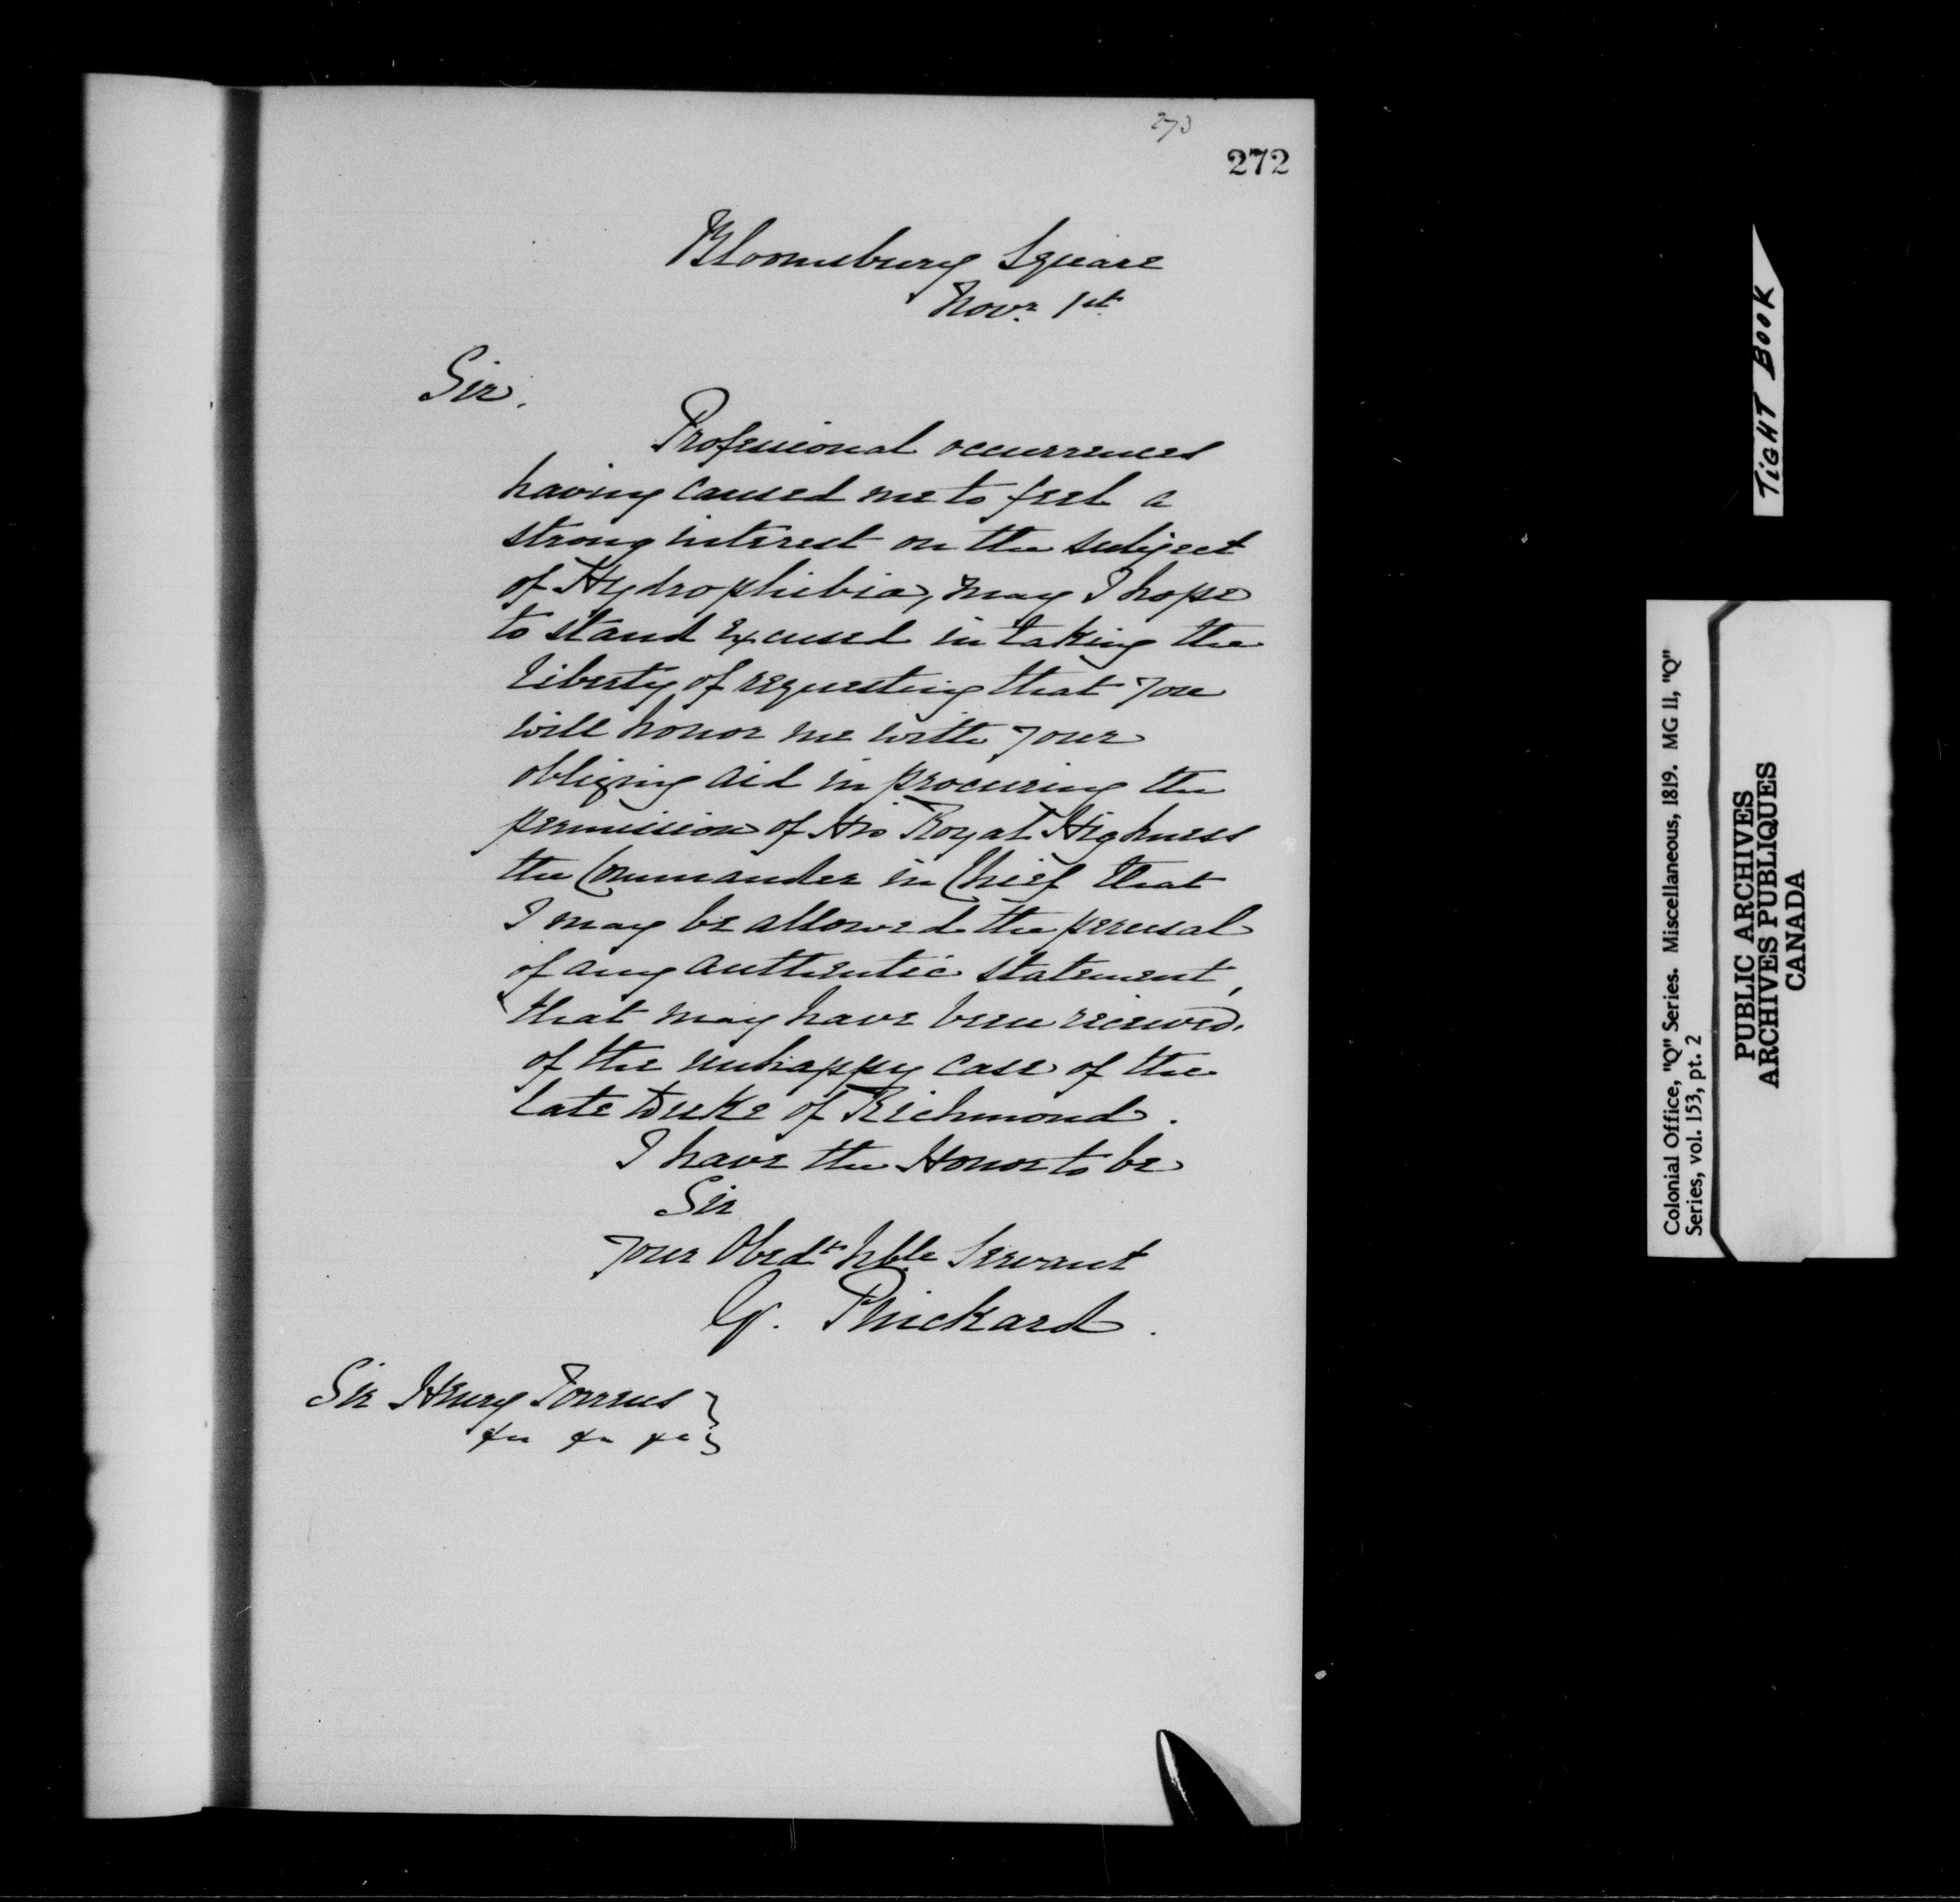 273
272
Bloomsbury Square
Novr. 1st.
Sir.
Professional occurrences
having caused me to feel a
strong interest on the subject
of Hydrophibia, may I hope
to stand excused in taking the
liberty of requesting that you
will honor me with your
obliging aid in procuring the
permission of His Royal Highness
the Commander in Chief that
I may be allowed the perusal
of any authentic statement,
that may have been received,
of the unhappy case of the
late Duke of Richmond.
I have the Honor to be
Sir
Your Obedt. hble Servant
G. Pinckard.
Sir Henry Torrens }
&c &c &c }
TiGHT BOOK
Colonial Office, "Q" Series. Miscellaneous, 1819. MG 11, "Q"
Series, vol. 153, pt. 2
PUBLIC ARCHIVES
ARCHIVES PUBLIQUES
CANADA